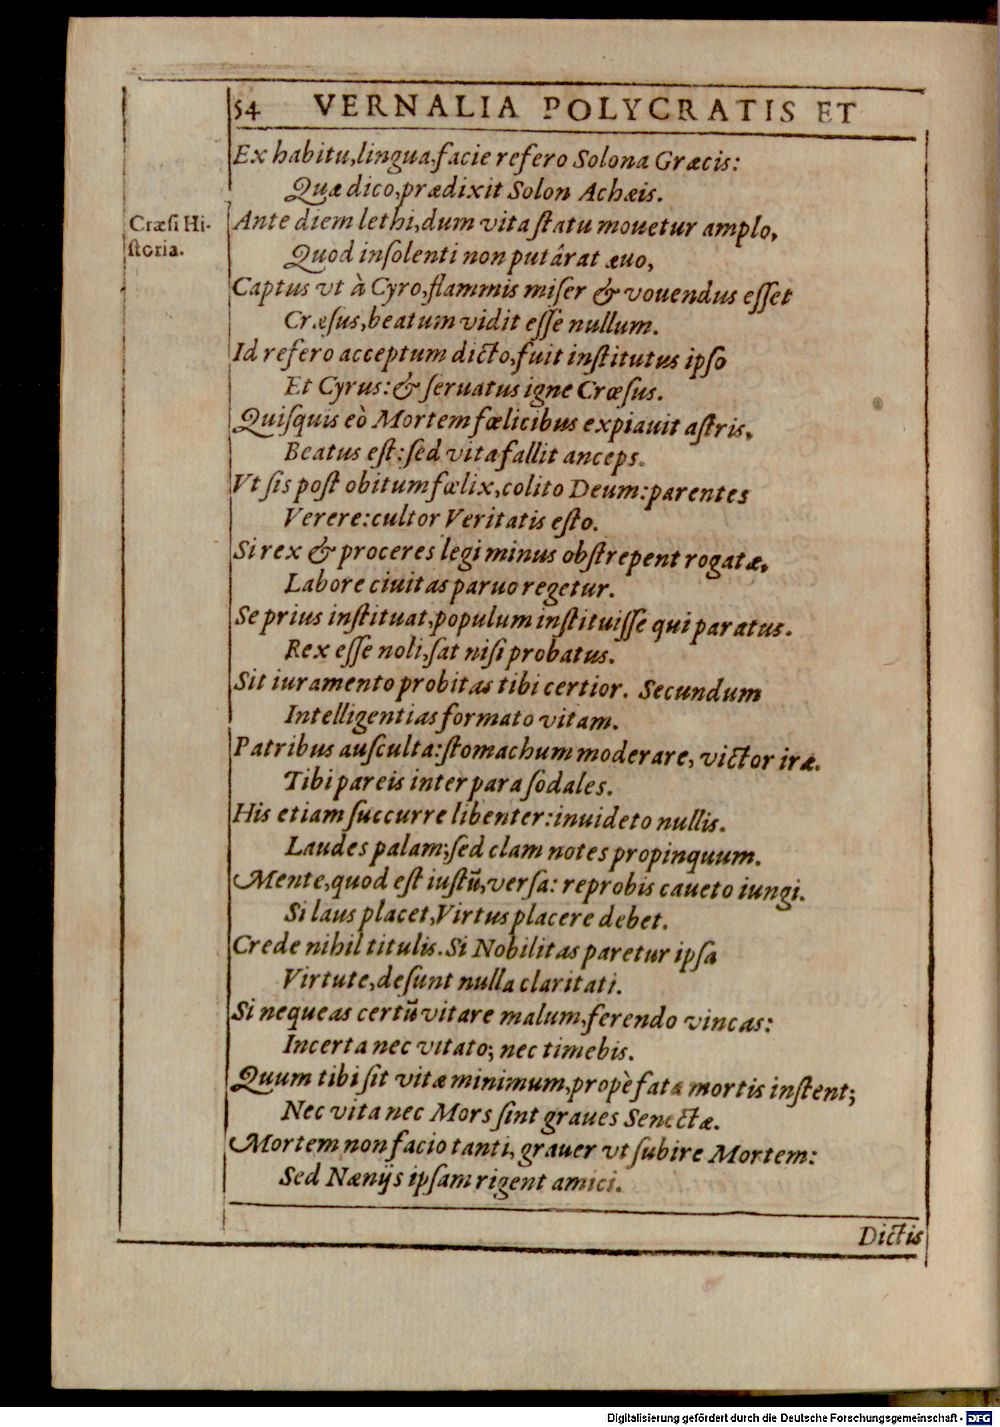 54 VERNALIA POLYCRATIS ET
Ex habitu, lingua, facie refero Solona Græcis:
Quæ dico, prædixit Solon Achæis.
Cræſi Hi-
ſtoria.
Ante diem lethi, dum vita ſtatu mouetur amplo,
Quod inſolenti non putârat æuo,
Captus vt à Cyro, flammis miſer & vouendus eſſet
Cræſus, beatum vidit eſſe nullum.
Id refero acceptum dicto, fuit inſtitutus ipſo
Et Cyrus: & ſeruatus igne Cræſus.
Quiſquis eò Mortem fœlicibus expiauit aſtris,
Beatus eſt: ſed vita fallit anceps.
Vt ſis poſt obitum fœlix, colito Deum: parentes
Verere: cultor Veritatis eſto.
Si rex & proceres legi minus obſtrepent rogatæ,
Labore ciuitas paruo regetur.
Se prius inſtituat, populum inſtituiſſe qui paratus.
Rex eſſe noli, ſat niſi probatus.
Sit iuramento probitas tibi certior. Secundum
Intelligentias formato vitam.
Patribus auſculta: ſtomachum moderare, victor iræ.
Tibi pareis inter para ſodales.
His etiam ſuccurre libenter: inuideto nullis.
Laudes palam; ſed clam notes propinquum.
Mente, quod eſt iuſtũ, verſa: reprobis caueto iungi.
Si laus placet, Virtus placere debet.
Crede nihil titulis. Si Nobilitas paretur ipſa
Virtute, deſunt nulla claritati.
Si nequeas certũ vitare malum, ferendo vincas:
Incerta nec vitato; nec timebis.
Quum tibi ſit vitæ minimum, propè fata mortis inſtent;
Nec vita nec Mors ſint graues Senectæ.
Mortem non facio tanti, grauer vt ſubire Mortem:
Sed Nænijs ipſam rigent amici.
Dictis
Digitalisierung gefördert durch die Deutsche Forschungsgemeinschaft - DFG